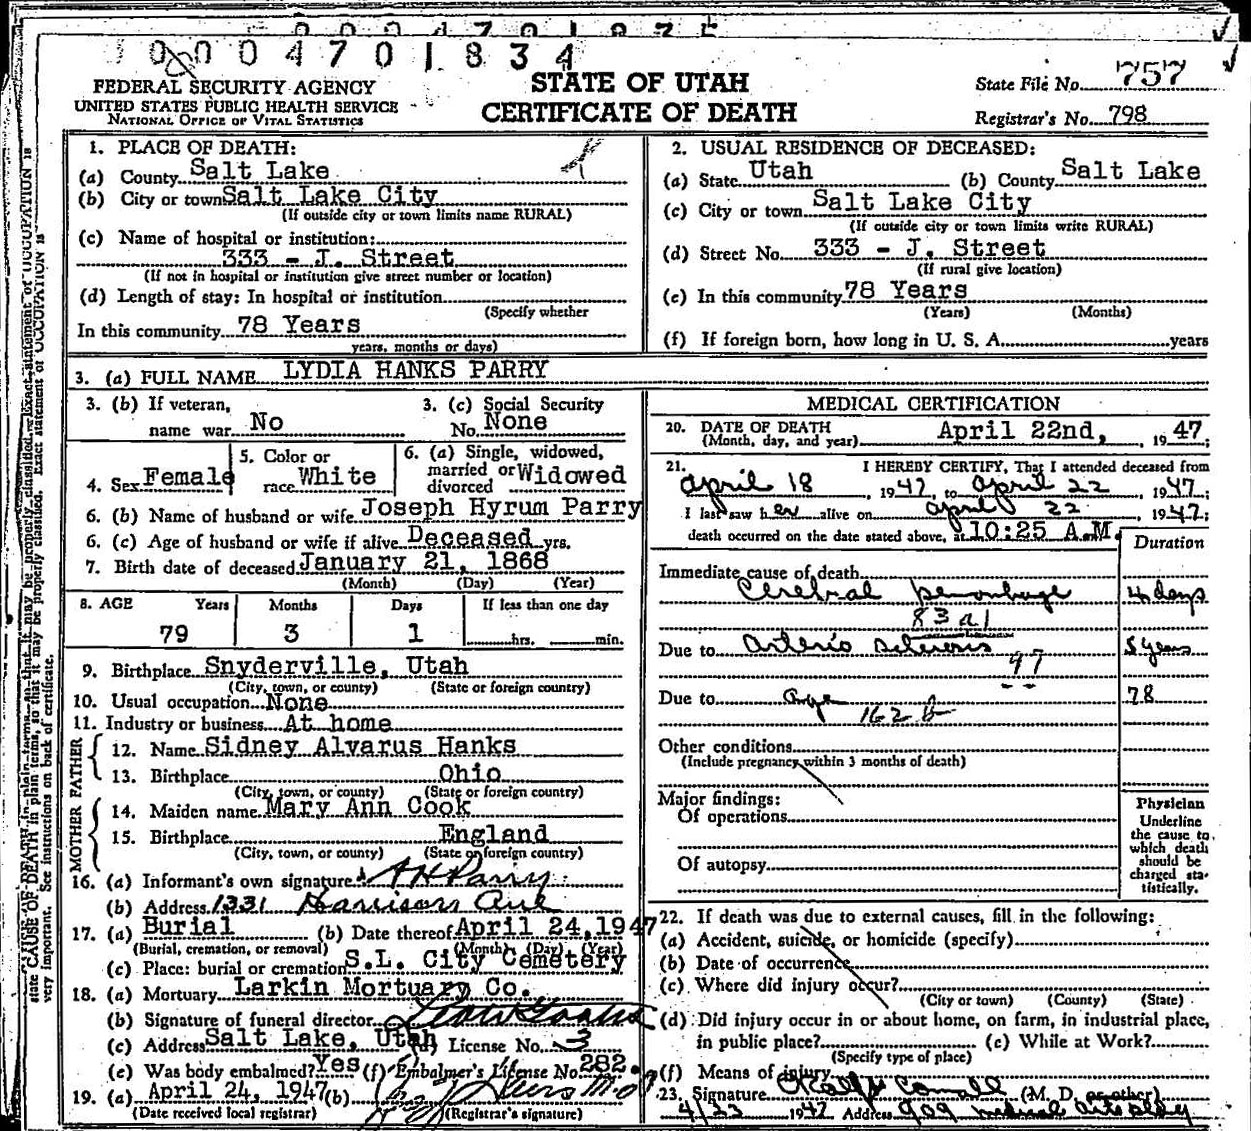 0004701834
FEDERAL SECURITY AGENCY
UNITED STATES PUBLIC HEALTH SERVICE
NATIONAL OFFICE OF VITAL STATISTICS
STATE OF UTAH
CERTIFICATE OF DEATH
State File No. 757
Registrar's No. 798
1. PLACE OF DEATH:
(a) County Salt Lake
(b) City or town Salt Lake City
(If outside city or town limits name RURAL)
(c) Name of hospital or institution:
333 - J. Street
(If not in hospital or institution give street number or location)
(d) Length of stay: In hospital or institution
(Specify whether
In this community 78 Years
years, months or days)
2. USUAL RESIDENCE OF DECEASED:
(a) State Utah (b) County Salt Lake
(c) City or town Salt Lake City
(If outside city or town limits write RURAL)
(d) Street No. 333 - J. Street
(If rural give location)
(e) In this community 78 Years
(Years) (Months)
(f) If foreign born, how long in U. S. A. years
3. (a) FULL NAME LYDIA HANKS PARRY
3. (b) If veteran, name war No
3. (c) Social Security No. None
4. Sex Female
5. Color or race White
6. (a) Single, widowed, married or divorced Widowed
6. (b) Name of husband or wife Joseph Hyrum Parry
6. (c) Age of husband or wife if alive Deceased yrs.
7. Birth date of deceased January 21, 1868
(Month) (Day) (Year)
8. AGE Years Months Days If less than one day
79 3 1 hrs. min.
9. Birthplace Snyderville, Utah
(City, town, or county) (State or foreign country)
10. Usual occupation None
11. Industry or business At home
FATHER
12. Name Sidney Alvarus Hanks
13. Birthplace Ohio
(City, town, or county) (State or foreign country)
MOTHER
14. Maiden name Mary Ann Cook
15. Birthplace England
(City, town, or county) (State or foreign country)
16. (a) Informant's own signature A H Parry
(b) Address 1331 Harrison Ave
17. (a) Burial (b) Date thereof April 24, 1947
(Burial, cremation, or removal) (Month) (Day) (Year)
(c) Place: burial or cremation S.L. City Cemetery
18. (a) Mortuary Larkin Mortuary Co.
(b) Signature of funeral director
(c) Address Salt Lake, Utah (d) License No. 3
(e) Was body embalmed? Yes (f) Embalmer's License No. 282
19. (a) April 24, 1947 (b)
(Date received local registrar) (Registrar's signature)
MEDICAL CERTIFICATION
20. DATE OF DEATH
(Month, day, and year) April 22nd, 1947;
21. I HEREBY CERTIFY, That I attended deceased from
April 18, 1947, to April 22 1947;
I last saw her alive on April 22 1947;
death occurred on the date stated above, at 10:25 A.M.
Duration
Immediate cause of death
Cerebral hemorrhage 4 days
83 a1
Due to Arterio sclerosis 5 years
97
Due to Age 78
162 b
Other conditions
(Include pregnancy within 3 months of death)
Major findings:
Of operations
Of autopsy
Physician
Underline
the cause to
which death
should be
charged sta-
tistically.
22. If death was due to external causes, fill in the following:
(a) Accident, suicide, or homicide (specify)
(b) Date of occurrence
(c) Where did injury occur?
(City or town) (County) (State)
(d) Did injury occur in or about home, on farm, in industrial place,
in public place? (e) While at Work?
(Specify type of place)
(f) Means of injury
23. Signature (M. D. or other)
4/23 1947 Address 909 Medical Arts Bldg
state CAUSE OF DEATH in plain terms, so that it may be properly classified. Exact statement of OCCUPATION is
very important. See instructions on back of certificate.